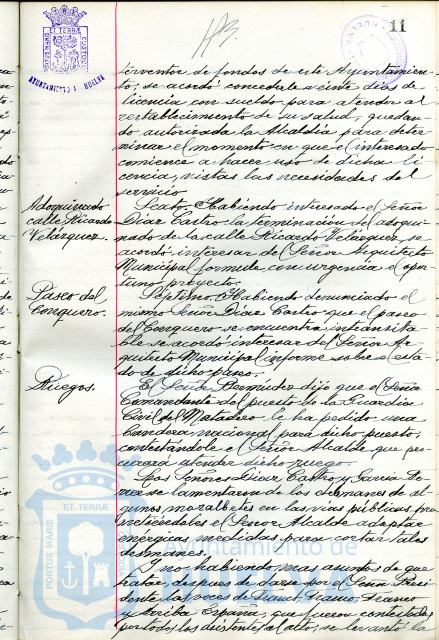 11
AYUNTAMIENTO HUELVA
terventor de fondos de este Ayuntamien-
to, se acordó concederle veinte dias de
licencia con sueldo para atender al
restablecimiento de su salud, quedan-
do autorizada la Alcaldia para deter
minar el momento en que el interesado
comience a hacer uso de dicha li
cencia, vistas las necesidades del
servicio
Adoquinado
calle Ricardo
Velázquez.
Sexto. Habiendo interesado el Señor
Diaz Castro la terminación del adoqui-
nado de la calle Ricardo Velázquez, se
acordó interesar del Señor Arquitecto
Municipal formule con urgencia el opor-
tuno proyecto.
Paseo del
Conquero.
Séptimo. Habiendo denunciado el
mismo Señor Diaz Castro que el paseo
del Conquero se encuentra intransita-
ble se acordó interesar del Señor Ar-
quitecto Municipal informe sobre el esta-
do de dicho paseo.
Ruegos.
El Señor Bermudez dijo que el Señor
Comandante del puesto de la Guardia
Civil del Matadero, le ha pedido una
bandera nacional para dicho puesto,
contestándole el Señor Alcalde que pro-
curará atender dicho ruego
Los Señores Diaz Castro y Garcia
se lamentaron de los desmanes de al-
gunos en las vias públicas, pro
metiéndoles el Señor Alcalde adoptar
enérgicas medidas para cortar tales
desmanes.
Y no habiendo mas asuntos de que
tratar, despues de darse por el Señor Presi
dente las voces de Franco, Franco, Franco
y Arriba España, que fueron contestadas
por todos los asistentes al acto, se levantó la
PORTUS MARIS
ET TERRÆ
Ayuntamiento de